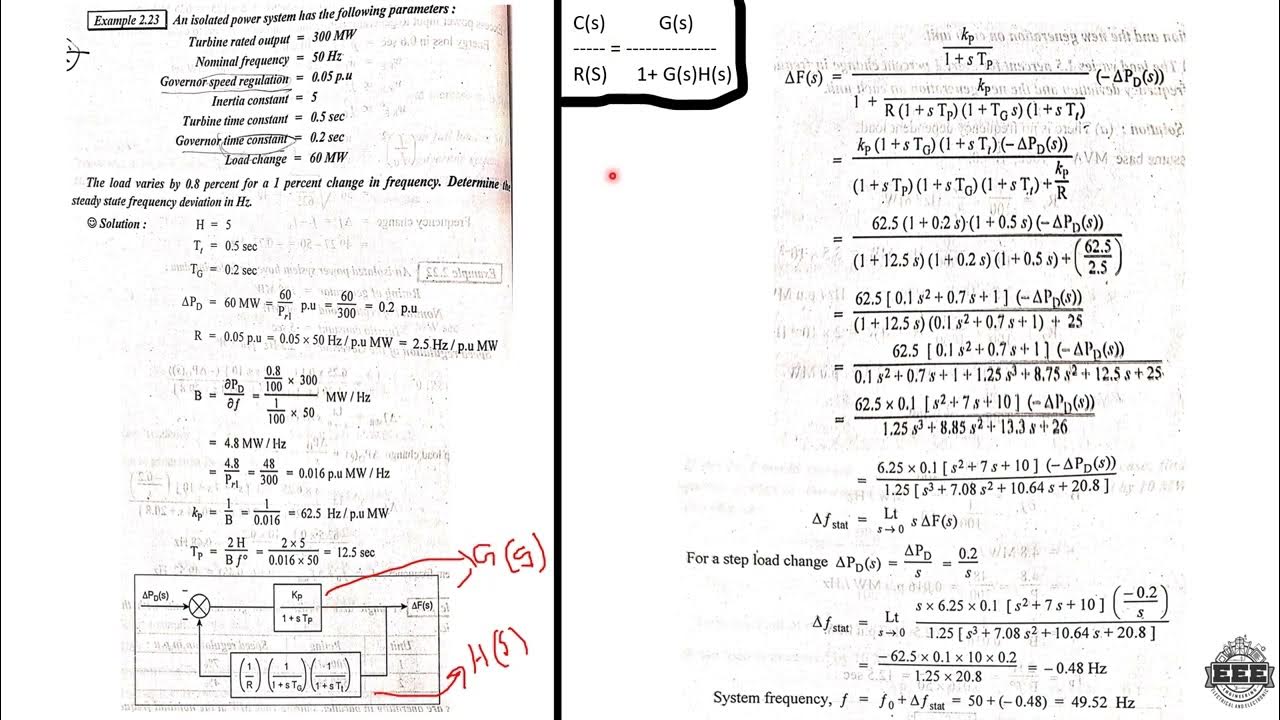 Example 2.23 An isolated power system has the following parameters :
Turbine rated output = 300 MW
Nominal frequency = 50 Hz
Governor speed regulation = 0.05 p.u
Inertia constant = 5
Turbine time constant = 0.5 sec
Governor time constant = 0.2 sec
Load change = 60 MW
The load varies by 0.8 percent for a 1 percent change in frequency. Determine the
steady state frequency deviation in Hz.
☺ Solution : H = 5
T_t = 0.5 sec
T_G = 0.2 sec
ΔP_D = 60 MW = 60/P_r1 p.u = 60/300 = 0.2 p.u
R = 0.05 p.u = 0.05 × 50 Hz / p.u MW = 2.5 Hz / p.u MW
B = ∂P_D/∂f = (0.8/100 × 300)/(1/100 × 50) MW / Hz
= 4.8 MW / Hz
= 4.8/P_r1 = 48/300 = 0.016 p.u MW / Hz
k_P = 1/B = 1/0.016 = 62.5 Hz / p.u MW
T_P = 2 H/B f° = 2 × 5/0.016 × 50 = 12.5 sec
G(S)
ΔP_D(s) − K_P/1 + s T_P ΔF(s)
−
H(S)
(1/R) (1/1 + s T_G) (1/1 + s T_t)
C(s) G(s)
----- = --------------
R(S) 1+ G(s)H(s)
ΔF(s) = (k_P/1 + s T_P)/(1 + k_P/R (1 + s T_P) (1 + T_G s) (1 + s T_t)) (−ΔP_D(s))
= k_P (1 + s T_G) (1 + s T_t) (−ΔP_D(s))/(1 + s T_P) (1 + s T_G) (1 + s T_t) + k_P/R
= 62.5 (1 + 0.2 s) (1 + 0.5 s) (−ΔP_D(s))/(1 + 12.5 s) (1 + 0.2 s) (1 + 0.5 s) + (62.5/2.5)
= 62.5 [ 0.1 s² + 0.7 s + 1 ] (−ΔP_D(s))/(1 + 12.5 s) (0.1 s² + 0.7 s + 1) + 25
= 62.5 [ 0.1 s² + 0.7 s + 1 ] (−ΔP_D(s))/0.1 s² + 0.7 s + 1 + 1.25 s³ + 8.75 s² + 12.5 s + 25
= 62.5 × 0.1 [ s² + 7 s + 10 ] (−ΔP_D(s))/1.25 s³ + 8.85 s² + 13.3 s + 26
= 6.25 × 0.1 [ s² + 7 s + 10 ] (−ΔP_D(s))/1.25 [ s³ + 7.08 s² + 10.64 s + 20.8 ]
Δf_stat = Lt s→0 s ΔF(s)
For a step load change ΔP_D(s) = ΔP_D/s = 0.2/s
Δf_stat = Lt s→0 s × 6.25 × 0.1 [ s² + 7 s + 10 ] (−0.2/s)/1.25 [ s³ + 7.08 s² + 10.64 s + 20.8 ]
= −62.5 × 0.1 × 10 × 0.2/1.25 × 20.8 = − 0.48 Hz
System frequency, f = f_0 + Δf_stat = 50 + (−0.48) = 49.52 Hz
EEE